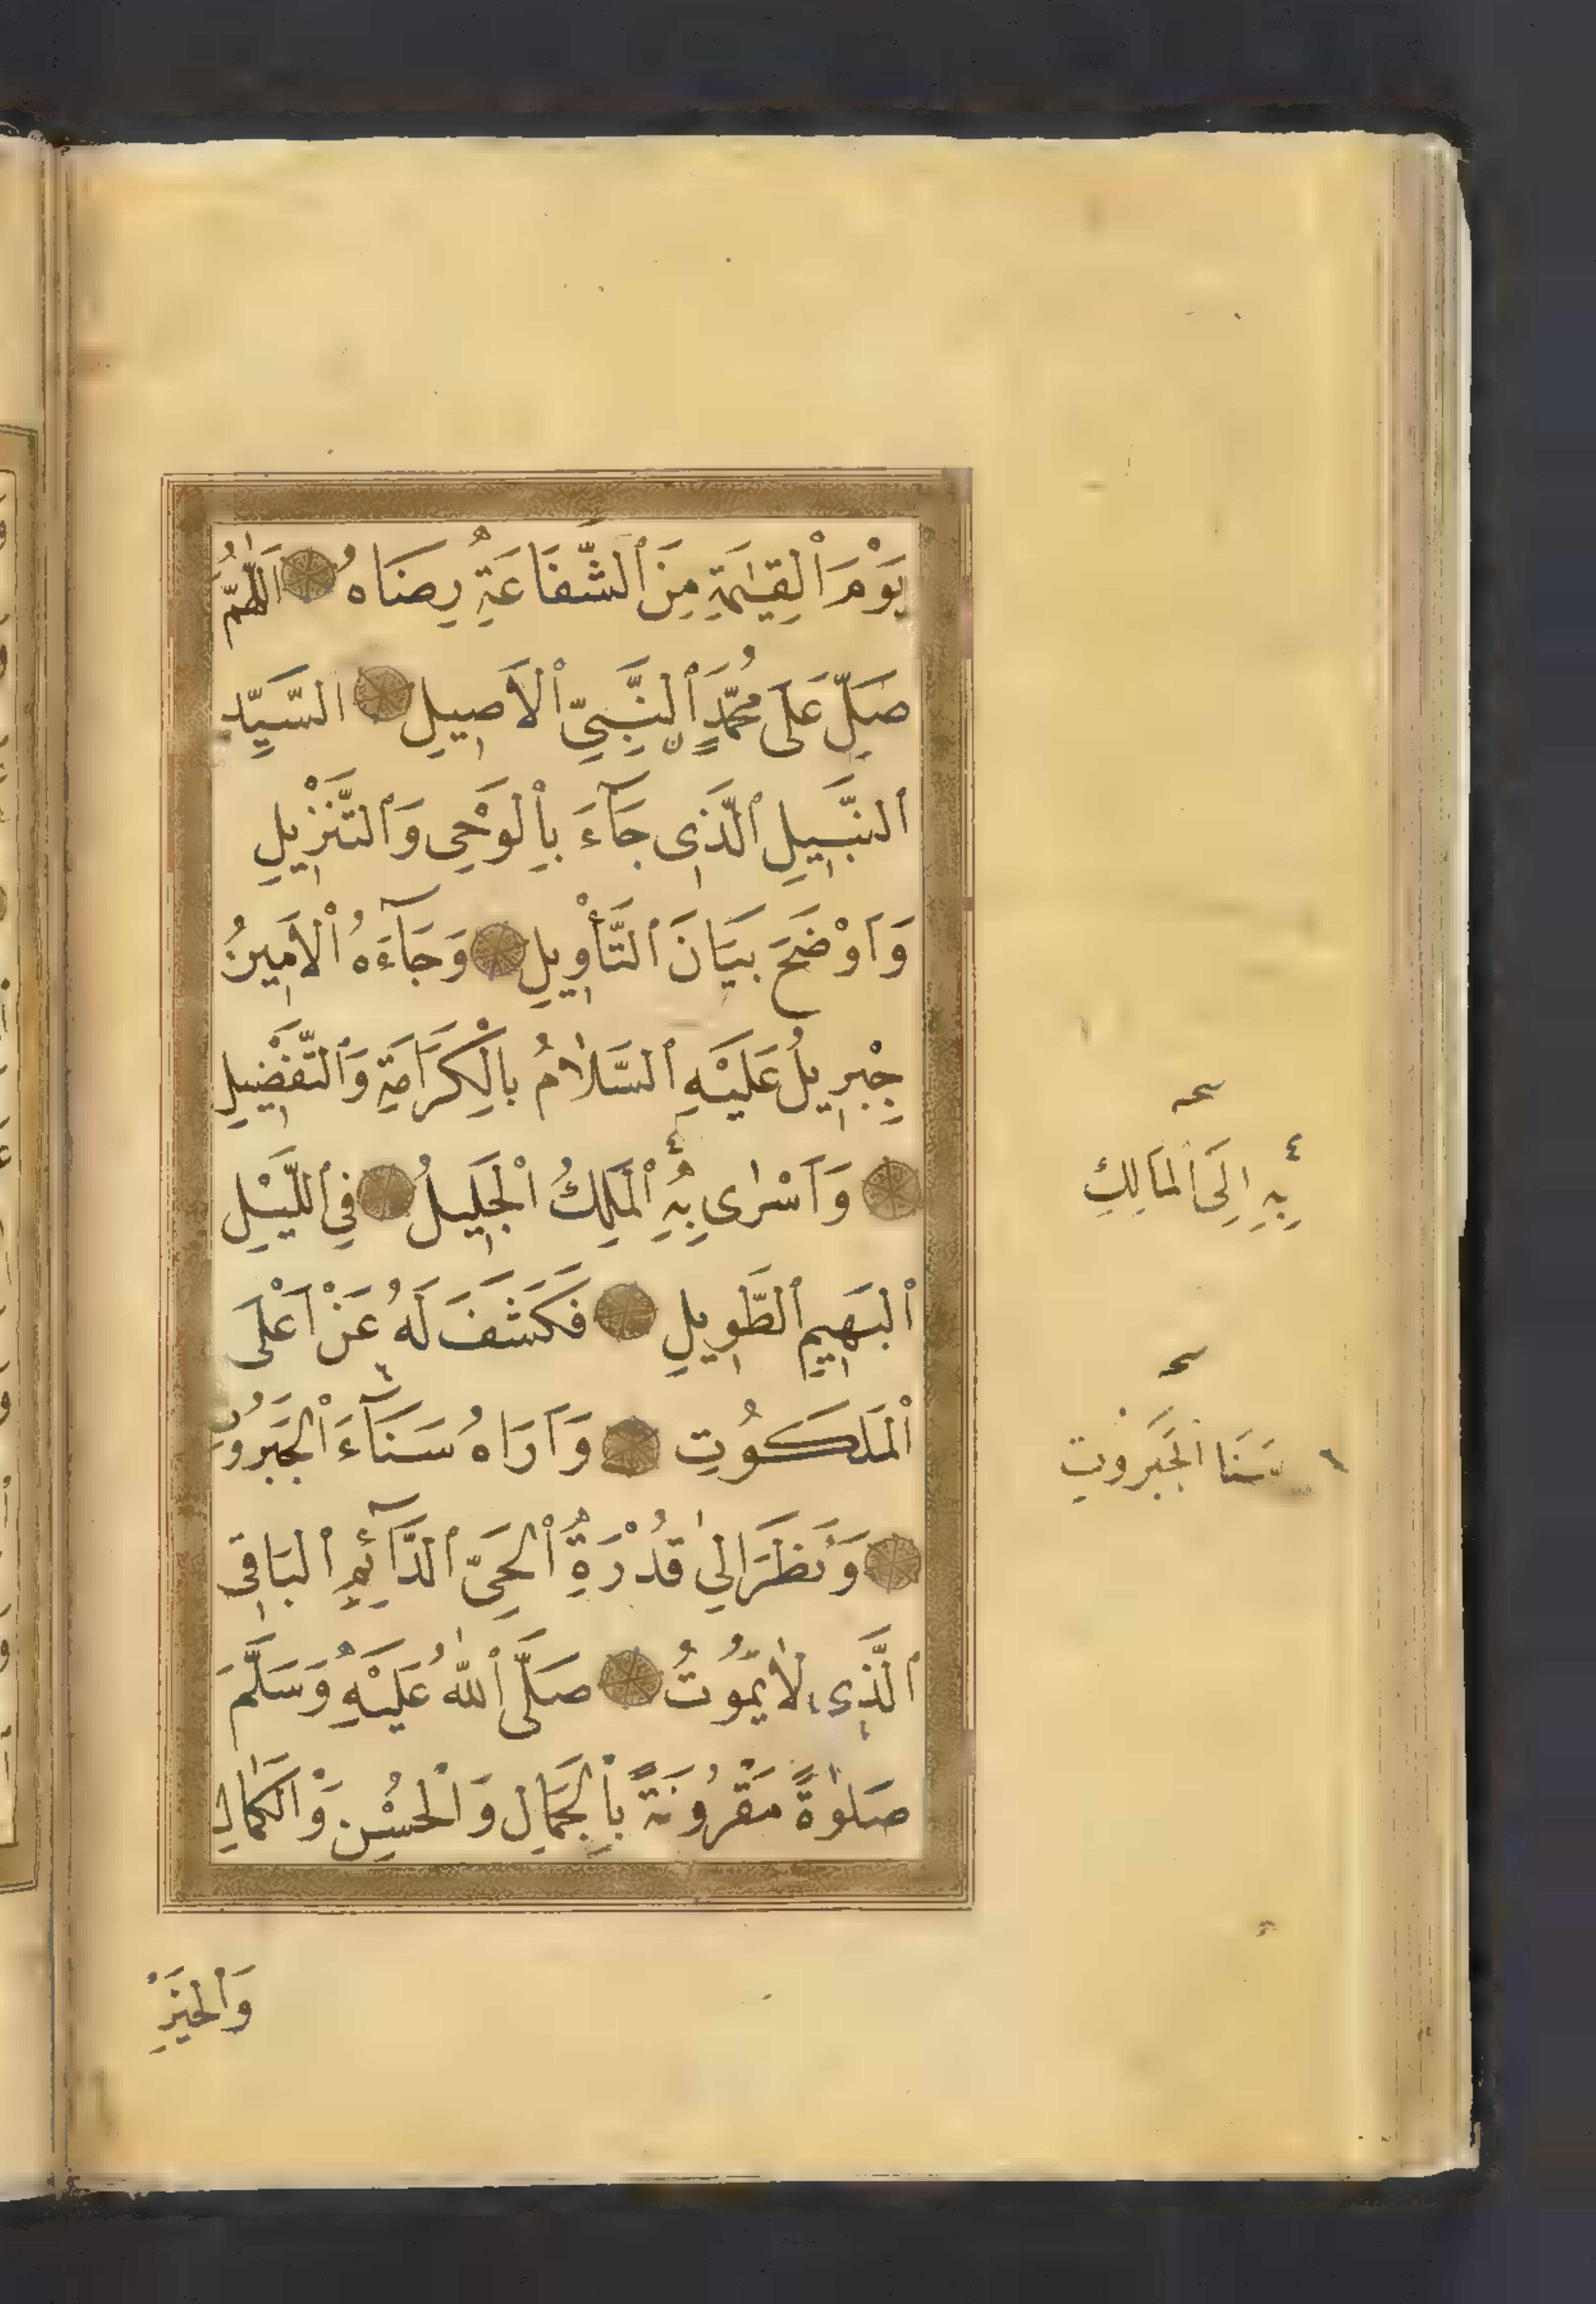 يَوْمَ ٱلْقِيٰمَةِ مِنَ ٱلشَّفَاعَةِ رِضَاهُ اَللّٰهُمَّ
صَلِّ عَلَى مُحَمَّدٍ ٱلنَّبِىِّ ٱلْاَصِيلِ السَّيِّدِ
ٱلنَّبِيلِ ٱلَّذِى جَآءَ بِاْلوَحْىِ وَٱلتَّنْزِيلِ
وَاَوْضَحَ بَيَانَ ٱلتَّأْوِيلِ وَجَآءَهُ ٱلْاَمِينُ
جِبْرِيلُ عَلَيْهِ ٱلسَّلَامُ بِالْكَرَامَةِ وَٱلتَّفْضِيلِ
وَاَسْرٰى بِهِ ٱلْمَلِكُ ٱلْجَلِيلُ فِي ٱللَّيْلِ
ٱلْبَهِيمِ ٱلطَّوِيلِ فَكَشَفَ لَهُ عَنْ اَعْلَى
ٱلْمَلَكُوتِ وَاَرَاهُ سَنَآءَ ٱلْجَبَرُوتِ
وَنَظَرَ اِلٰى قُدْرَةِ ٱلْحَىِّ ٱلدَّآئِمِ ٱلْبَاقِى
ٱلَّذِى لَا يَمُوتُ صَلَّى ٱللّٰهُ عَلَيْهِ وَسَلَّمَ
صَلٰوةً مَقْرُونَةً بِاْلجَمَالِ وَٱلْحُسْنِ وَٱلْكَمَالِ
وَٱلْخَيْرِ
صح
٤ بِهِ اِلَى الْمَالِكِ
صح
٦ سَنَا الْجَبَرُوتِ